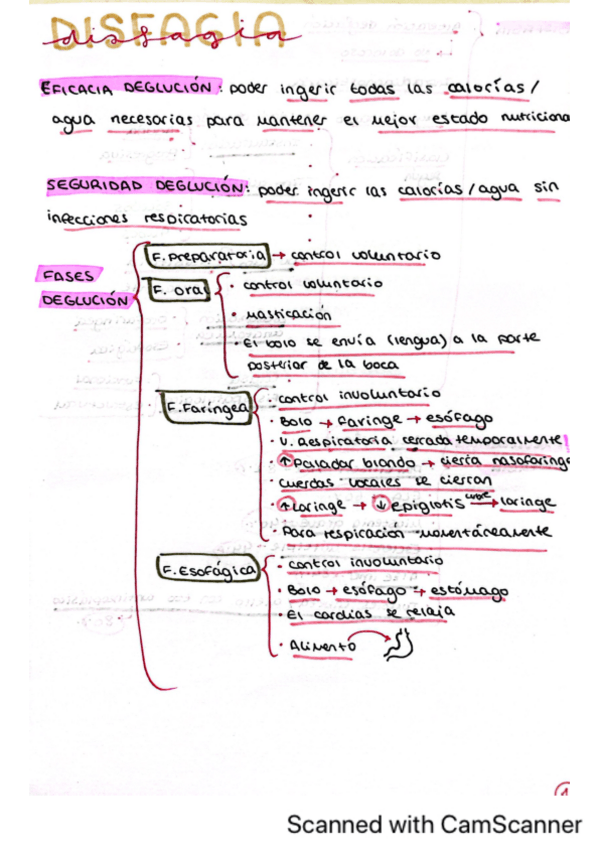 DISFAGIA
disfagia
EFICACIA DEGLUCIÓN: poder ingerir todas las calorías/
agua necesarias para mantener el mejor estado nutriciona
SEGURIDAD DEGLUCIÓN: poder ingerir las calorías/agua sin
infecciones respiratorias
FASES
DEGLUCIÓN
F. Preparatoria → control voluntario
F. oral
· control voluntario
· Masticación
· El bolo se envía (lengua) a la parte
posterior de la boca
F. Faríngea
· control involuntario
· Bolo → faringe → esófago
· V. Respiratoria cerrada temporalmente
· ↑ Paladar blando → cierra nasofaringe
· Cuerdas vocales se cierran
· ↑ Laringe → ↓ epiglotis cubre → laringe
· Para respiración momentáneamente
F. Esofágica
· control involuntario
· Bolo → esófago → estómago
· El cardias se relaja
· Alimento →
Scanned with CamScanner